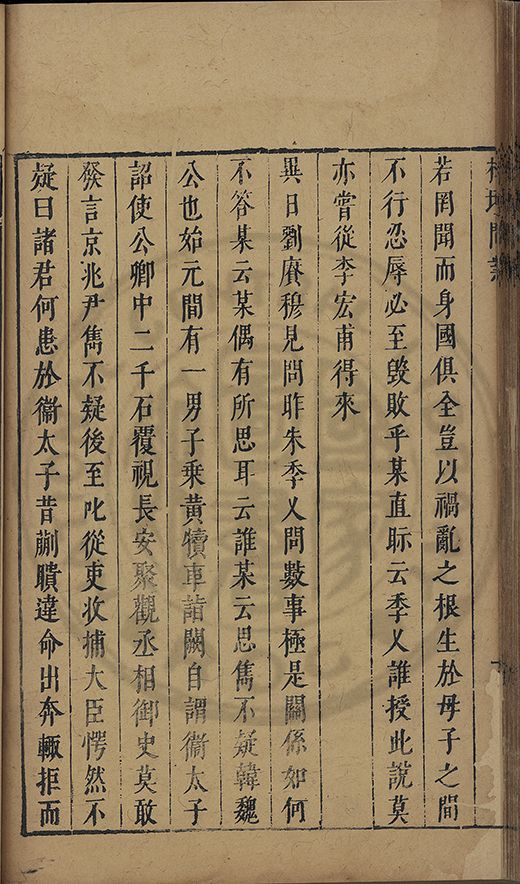 若罔聞而身國俱全豈以禍亂之根生於母子之間
不行忍辱必至毀敗乎某直眎云季乂誰授此說莫
亦嘗從李宏甫得來
異日劉賡穆見問昨朱季乂問數事極是關係如何
不答某云某偶有所思耳云誰某云思雋不疑韓魏
公也始元間有一男子乘黃犢車詣闕自謂衞太子
詔使公卿中二千石覆視長安聚觀丞相御史莫敢
發言京兆尹雋不疑後至叱從吏收捕大臣愕然不
疑曰諸君何患於衞太子昔蒯聵違命出奔輒拒而